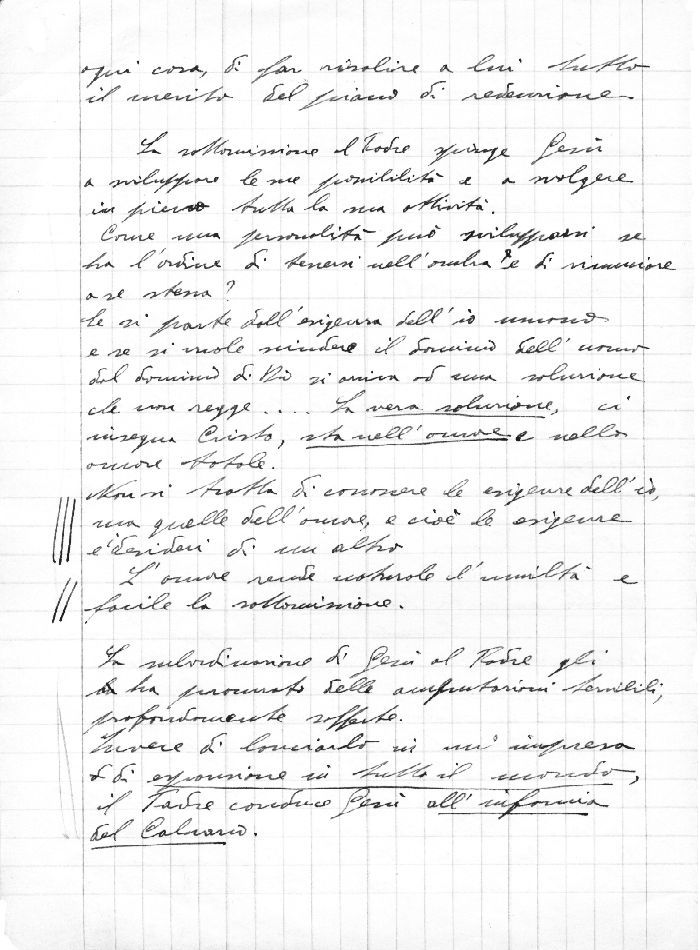 ogni cosa, di far risalire a lui tutto
il merito del piano di redenzione.
La sottomissione al Padre spinge Gesù
a sviluppare le sue possibilità e a svolgere
in pieno tutta la sua attività.
Come una personalità può svilupparsi se
ha l'ordine di tenersi nell'ombra e di rinunciare
a se stessa?
Se si parte dall'esigenza dell'io umano
e se si vuole scindere il dominio dell'uomo
dal dominio di Dio si arriva ad una soluzione
che non regge.... La vera soluzione, ci
insegna Cristo, sta nell'amore e nello
amore totale.
Non si tratta di conoscere le esigenze dell'io,
ma quelle dell'amore, e cioè le esigenze
e i desideri di un altro
L'amore rende naturale l'umiltà e
facile la sottomissione.
La subordinazione di Gesù al Padre gli
ha procurato delle amputazioni terribili,
profondamente sofferte.
Invece di lanciarlo in un'impresa
di espansione in tutto il mondo,
il Padre conduce Gesù all'infamia
del Calvario.